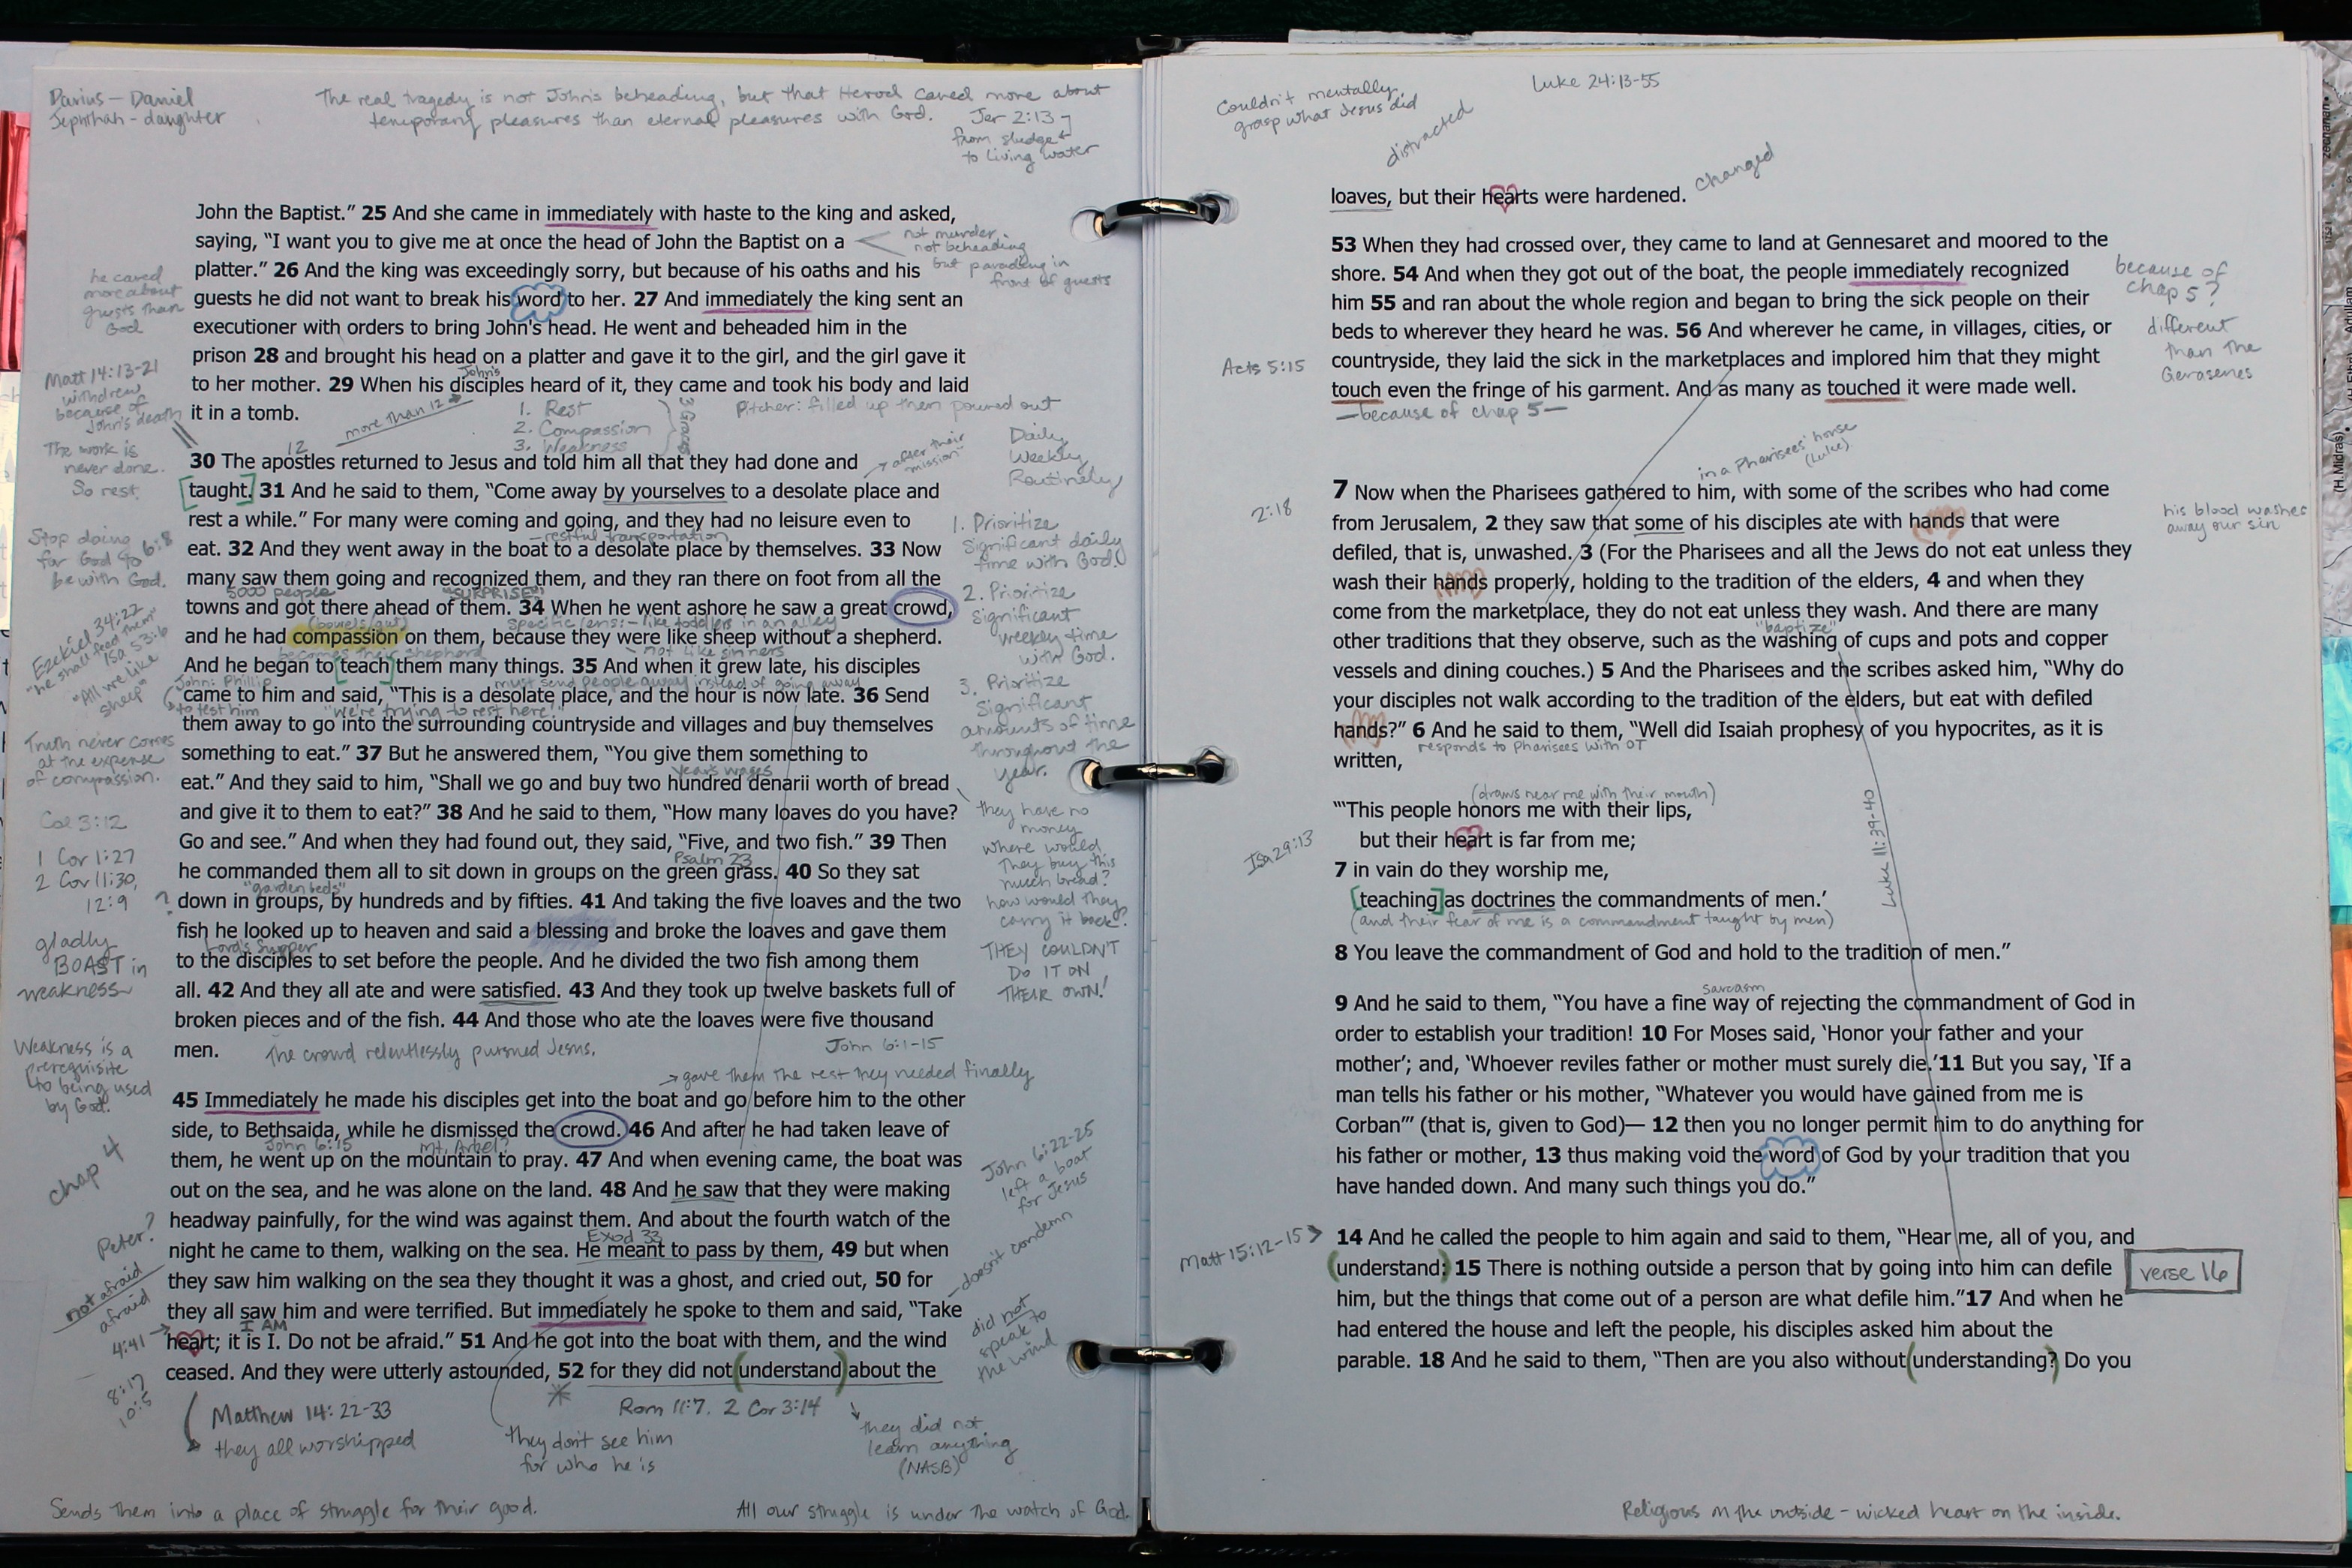 Darius – Daniel
Jephthah – daughter
The real tragedy is not John's beheading, but that Herod cared more about
temporary pleasures than eternal pleasures with God.
Jer 2:13
from sludge
to living water
John the Baptist.” 25 And she came in immediately with haste to the king and asked,
saying, “I want you to give me at once the head of John the Baptist on a
not murder,
not beheading
but parading in
front of guests
platter.” 26 And the king was exceedingly sorry, but because of his oaths and his
he cared
more about
guests than
God
guests he did not want to break his word to her. 27 And immediately the king sent an
executioner with orders to bring John's head. He went and beheaded him in the
prison 28 and brought his head on a platter and gave it to the girl, and the girl gave it
John's
to her mother. 29 When his disciples heard of it, they came and took his body and laid
it in a tomb.
Matt 14:13-21
withdrew
because of
John's death
more than 12
1. Rest
2. Compassion
3. Weakness
3 Groups
Pitcher: filled up then poured out
Daily
Weekly
Routinely
The work is
never done.
So rest.
12
after their
mission
30 The apostles returned to Jesus and told him all that they had done and
taught. 31 And he said to them, “Come away by yourselves to a desolate place and
rest a while.” For many were coming and going, and they had no leisure even to
restful transportation
eat. 32 And they went away in the boat to a desolate place by themselves. 33 Now
many saw them going and recognized them, and they ran there on foot from all the
5000 people
"SURPRISE!"
towns and got there ahead of them. 34 When he went ashore he saw a great crowd,
(bowels/gut)
specific lens: – like toddlers in an alley
and he had compassion on them, because they were like sheep without a shepherd.
becomes their shepherd
– not like sinners
And he began to teach them many things. 35 And when it grew late, his disciples
John: Phillip
to test him
must send people away instead of going away
came to him and said, “This is a desolate place, and the hour is now late. 36 Send
"We're trying to rest here!"
them away to go into the surrounding countryside and villages and buy themselves
something to eat.” 37 But he answered them, “You give them something to
year's wages
eat.” And they said to him, “Shall we go and buy two hundred denarii worth of bread
and give it to them to eat?” 38 And he said to them, “How many loaves do you have?
Go and see.” And when they had found out, they said, “Five, and two fish.” 39 Then
Psalm 23
he commanded them all to sit down in groups on the green grass. 40 So they sat
"garden beds"
down in groups, by hundreds and by fifties. 41 And taking the five loaves and the two
fish he looked up to heaven and said a blessing and broke the loaves and gave them
Lord's Supper
to the disciples to set before the people. And he divided the two fish among them
all. 42 And they all ate and were satisfied. 43 And they took up twelve baskets full of
broken pieces and of the fish. 44 And those who ate the loaves were five thousand
men.
The crowd relentlessly pursued Jesus.
John 6:1-15
Stop doing
for God to
be with God.
6:8
Ezekiel 34:22
"he shall feed them"
Isa 53:6
"All we like
sheep"
Truth never comes
at the expense
of compassion.
Col 3:12
1 Cor 1:27
2 Cor 11:30,
12:9
?
gladly
BOAST in
weakness
Weakness is a
prerequisite
to being used
by God.
1. Prioritize
Significant daily
time with God.
2. Prioritize
significant
weekly time
with God.
3. Prioritize
Significant
amounts of time
throughout the
year.
they have no
money
where would
they buy this
much bread?
how would they
carry it back?
THEY COULDN'T
DO IT ON
THEIR OWN!
gave them the rest they needed finally
45 Immediately he made his disciples get into the boat and go before him to the other
side, to Bethsaida, while he dismissed the crowd. 46 And after he had taken leave of
John 6:15
Mt. Arbel?
them, he went up on the mountain to pray. 47 And when evening came, the boat was
out on the sea, and he was alone on the land. 48 And he saw that they were making
headway painfully, for the wind was against them. And about the fourth watch of the
Exod 33
night he came to them, walking on the sea. He meant to pass by them, 49 but when
they saw him walking on the sea they thought it was a ghost, and cried out, 50 for
they all saw him and were terrified. But immediately he spoke to them and said, “Take
I AM
heart; it is I. Do not be afraid.” 51 And he got into the boat with them, and the wind
ceased. And they were utterly astounded, 52 for they did not understand about the
chap 4
Peter?
not afraid
afraid
4:41
8:17
10:5
John 6:22-25
left a boat
for Jesus
– doesn't condemn
did not
speak to
the wind
Matthew 14:22-33
they all worshipped
Rom 11:7, 2 Cor 3:14
They don't see him
for who he is
they did not
learn anything
(NASB)
Sends them into a place of struggle for their good.
All our struggle is under the watch of God.
Couldn't mentally
grasp what Jesus did
distracted
Luke 24:13-55
changed
loaves, but their hearts were hardened.
53 When they had crossed over, they came to land at Gennesaret and moored to the
shore. 54 And when they got out of the boat, the people immediately recognized
him 55 and ran about the whole region and began to bring the sick people on their
beds to wherever they heard he was. 56 And wherever he came, in villages, cities, or
countryside, they laid the sick in the marketplaces and implored him that they might
touch even the fringe of his garment. And as many as touched it were made well.
– because of chap 5 –
Acts 5:15
because of
chap 5?
different
than the
Gerasenes
in a Pharisees' house
(Luke)
2:18
7 Now when the Pharisees gathered to him, with some of the scribes who had come
from Jerusalem, 2 they saw that some of his disciples ate with hands that were
his blood washes
away our sin
defiled, that is, unwashed. 3 (For the Pharisees and all the Jews do not eat unless they
wash their hands properly, holding to the tradition of the elders, 4 and when they
come from the marketplace, they do not eat unless they wash. And there are many
"baptize"
other traditions that they observe, such as the washing of cups and pots and copper
vessels and dining couches.) 5 And the Pharisees and the scribes asked him, “Why do
your disciples not walk according to the tradition of the elders, but eat with defiled
hands?” 6 And he said to them, “Well did Isaiah prophesy of you hypocrites, as it is
responds to Pharisees with OT
written,
(draws near me with their mouth)
“‘This people honors me with their lips,
but their heart is far from me;
Isa 29:13
7 in vain do they worship me,
teaching as doctrines the commandments of men.’
(and their fear of me is a commandment taught by men)
Luke 11:39-40
8 You leave the commandment of God and hold to the tradition of men.”
sarcasm
9 And he said to them, “You have a fine way of rejecting the commandment of God in
order to establish your tradition! 10 For Moses said, ‘Honor your father and your
mother’; and, ‘Whoever reviles father or mother must surely die.’11 But you say, ‘If a
man tells his father or his mother, “Whatever you would have gained from me is
Corban”’ (that is, given to God)— 12 then you no longer permit him to do anything for
his father or mother, 13 thus making void the word of God by your tradition that you
have handed down. And many such things you do.”
Matt 15:12-15
14 And he called the people to him again and said to them, “Hear me, all of you, and
understand: 15 There is nothing outside a person that by going into him can defile
verse 16
him, but the things that come out of a person are what defile him.”17 And when he
had entered the house and left the people, his disciples asked him about the
parable. 18 And he said to them, “Then are you also without understanding? Do you
Religious on the outside – wicked heart on the inside.
(H. Midras)